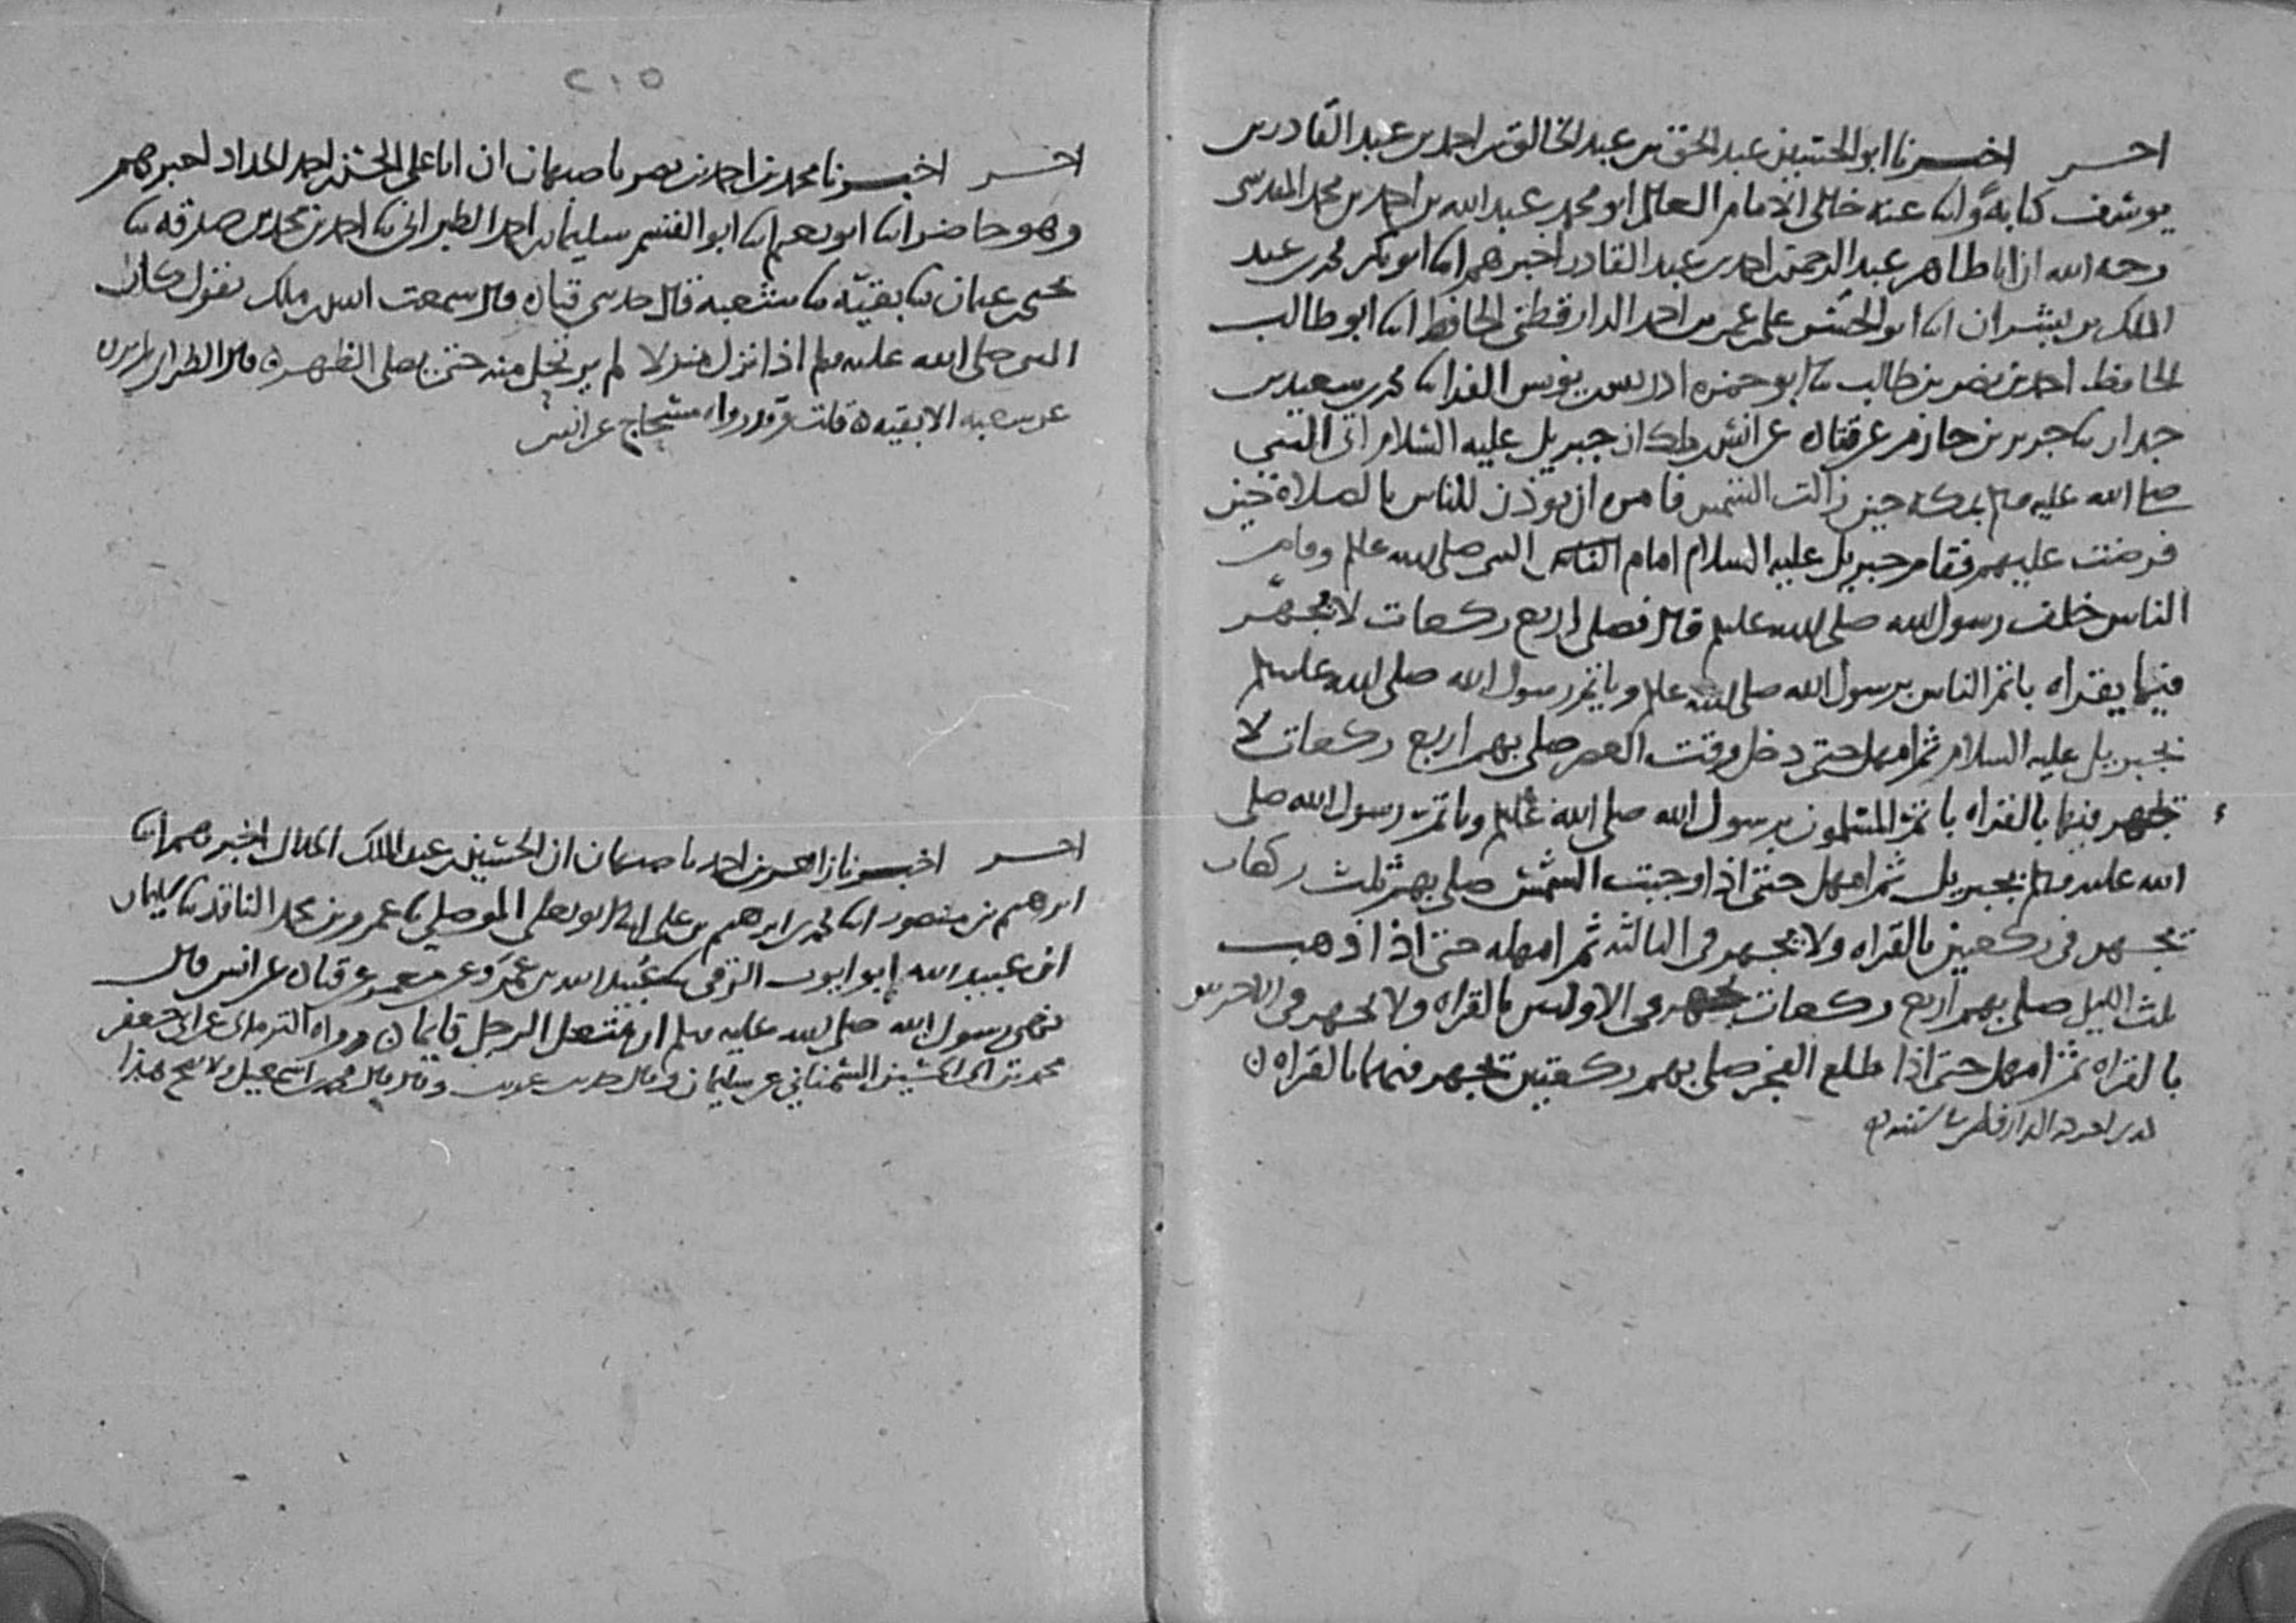 اخر اخبرنا ابو الحسين عبد الحق بن عبد الخالق بن احمد بن عبد القادر بن
يوسف كتابة وانا عنه خالي الامام العالم ابو محمد عبد الله بن احمد بن محمد المقدسي
رحمه الله ان ابا طاهر عبد الرحمن بن احمد بن عبد القادر اخبرهم انا ابو بكر محمد بن عبد
الملك بن بشران انا ابو الحسن علي بن عمر بن احمد الدارقطني الحافظ انا ابو طالب
الحافظ احمد بن نصر بن طالب نا ابو حمزه ادريس بن يونس الفرا نا محمد بن سعيد بن
جدار نا جرير بن حازم عن قتاده عن انس بن ملك ان جبريل عليه السلام اتى النبي
صلى الله عليه وسلم بمكه حين زالت الشمس فامره ان يوذن للناس بالصلاة حين
فرضت عليهم فقام جبريل عليه السلام امام النبي صلى الله عليه وسلم وقام
الناس خلف رسول الله صلى الله عليه وسلم قال فصلى اربع ركعات لا يجهر
فيها بقراه ياتم الناس برسول الله صلى الله عليه وسلم وياتم رسول الله صلى الله عليه وسلم
بجبريل عليه السلام ثم امهل حتى دخل وقت العصر صلى بهم اربع ركعات لا
يجهر فيها بالقراه ياتم المسلمون برسول الله صلى الله عليه وسلم وياتم رسول الله صلى
الله عليه وسلم بجبريل ثم امهل حتى اذا وجبت الشمس صلى بهم ثلث ركعات
يجهر في ركعتين بالقراه ولا يجهر في الثالثه ثم امهله حتى اذا ذهب
ثلث الليل صلى بهم اربع ركعات يجهر في الاوليين بالقراه ولا يجهر في الاخريين
بالقراه ثم امهل حتى اذا طلع الفجر صلى بهم ركعتين يجهر فيهما بالقراه ن
اخرجه الدارقطني في سننه
٢١٥
اخر اخبرنا محمد بن احمد بن نصر باصبهان ان ابا علي الحسن بن احمد الحداد اخبرهم
وهو حاضر انا ابو نعيم انا ابو القسم سليمان بن احمد الطبراني نا احمد بن محمد بن صدقه نا
يحيى بن عثمان نا بقيّه نا شعبه قال حدثني قتاده قال سمعت انس بن ملك يقول كان
النبي صلى الله عليه وسلم اذا نزل منزلا لم يرتحل منه حتى يصلي الظهر ه قال الطبراني لم يروه
عن شعبه الا بقيه ه قلت وقد رواه مسحاج عن انس
اخر اخبرنا زاهر بن احمد باصبهان ان الحسين بن عبد الملك الخلال اخبرهم انا
ابرهيم بن منصور انا محمد بن ابرهيم بن علي انا ابو يعلى الموصلي نا عمرو بن محمد الناقد نا سليمان
بن عبيد الله ابو ايوب الرقي نا عبيد الله بن عمرو عن معمر عن قتاده عن انس قال
نهى رسول الله صلى الله عليه وسلم ان ينتعل الرجل قايما ن ورواه الترمذي عن ابي جعفر
محمد بن الحسين السمناني عن سليمان وقال حديث غريب وقال قال محمد بن اسمعيل ولا يصح هذا